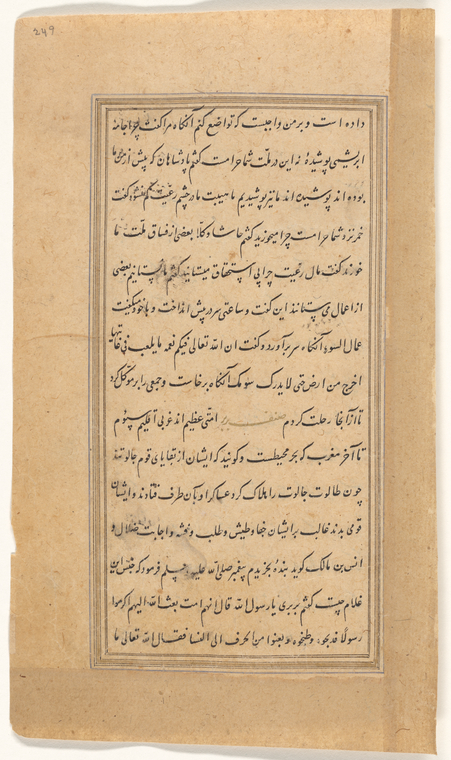 249
داده است و بر من واجبست که تواضع کنم آنگاه مرا گفت چرا جامهٔ
ابریشمی پوشیدهٔ نه این در ملّت شما حرامست گفتم پادشاهان که پیش از من
بوده اند پوشیده اند ما نیز پوشیدیم تا هیبت ما در چشم رعیت گفت
خمر نزد شما حرامست چرا میخورید گفتم حاشا و کلّا بعضی از فساق ملّت ما
خورند گفت مال رعیت چرا بی استحقاق میستانید گفتم ما نمیستانیم بعضی
از اعمال می ستانند این گفت و ساعتی سر در پیش انداخت و با خود میگفت
عمال السوء آنگاه سر برآورد و گفت ان الله تعالی فیکم نعمه ما یلعب فی
اخرج من ارضی حتی لا یدرک آنگاه برخاست و جمعی را بر موکل کرد
تا از آنجا رحلت کردم صفت بربر امتی عظیم اند غربی اقلیم سیوم
تا آخر مغرب که بحر محیطست و گویند که ایشان از بقایای قوم جالوتند
چون طالوت جالوت را هلاک کرد عساکر او بآن طرف فتادند و ایشان
قومی بدند غالب بر ایشان جفا و طیش و طلب و اجابت ضلال و
انس بن مالک گوید بندهٔ بخریدم پیغمبر صلی الله علیه و سلم فرمود که جنس این
غلام چیست گفتم بربری یا رسول الله قال انهم امت بعث الله الیهم
رسولا فذبحوه و طبخوه و بعثوا من الی النسا فقال الله تعالی ما